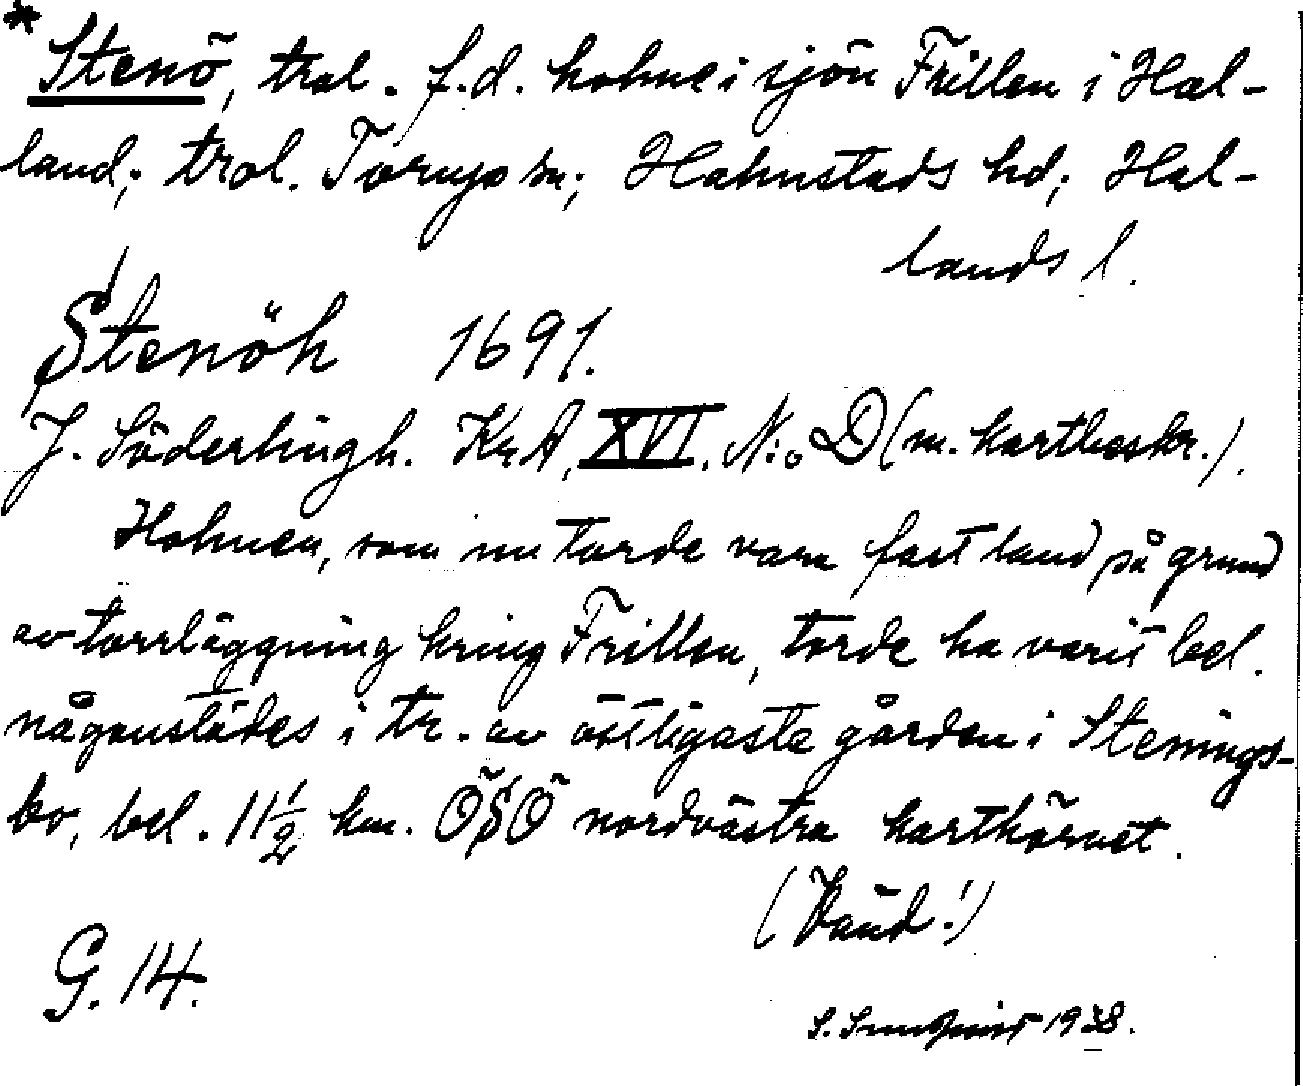 *Stenö, trol. f.d. holme i sjön Frillen i Hal-
land; trol. Torups sn; Halmstads hd; Hal-
lands l.
Stenöh 1691.
J. Söderlingh. KrA, XVI. N:o D (m. kartbeskr.).
Holmen, som nu torde vara fast land på grund
av torrläggning kring Frillen, torde ha varit bel.
någonstädes i tr. av östligaste gården i Stenings-
bo, bel. 11 1/2 km. ÖSÖ nordvästra karthörnet.
(Vänd!)
G. 14.
S. Sundqvist 1938.